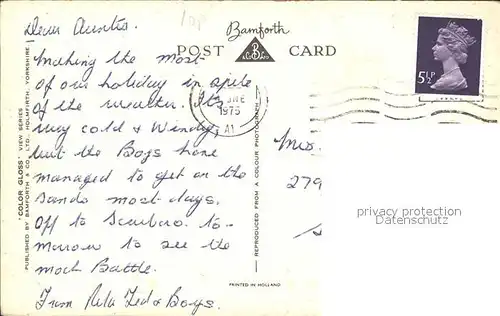 Dear Aunties.
Making the most
of our holiday in spite
of the weather. Its
very cold & Windy,
but the Boys have
managed to get on the
Sands most days.
Off to Scarboro. to-
morrow to see the
mock Battle.
From Rita Ted & Boys.
10p
Bamforth
POST CARD
B
& Co Ltd
"COLOR GLOSS" VIEW SERIES
PUBLISHED BY BAMFORTH & CO. LTD., HOLMFIRTH, YORKSHIRE
REPRODUCED FROM A COLOUR PHOTOGRAPH
PRINTED IN HOLLAND
1975
5½P
Mrs.
279
privacy protection
Datenschutz